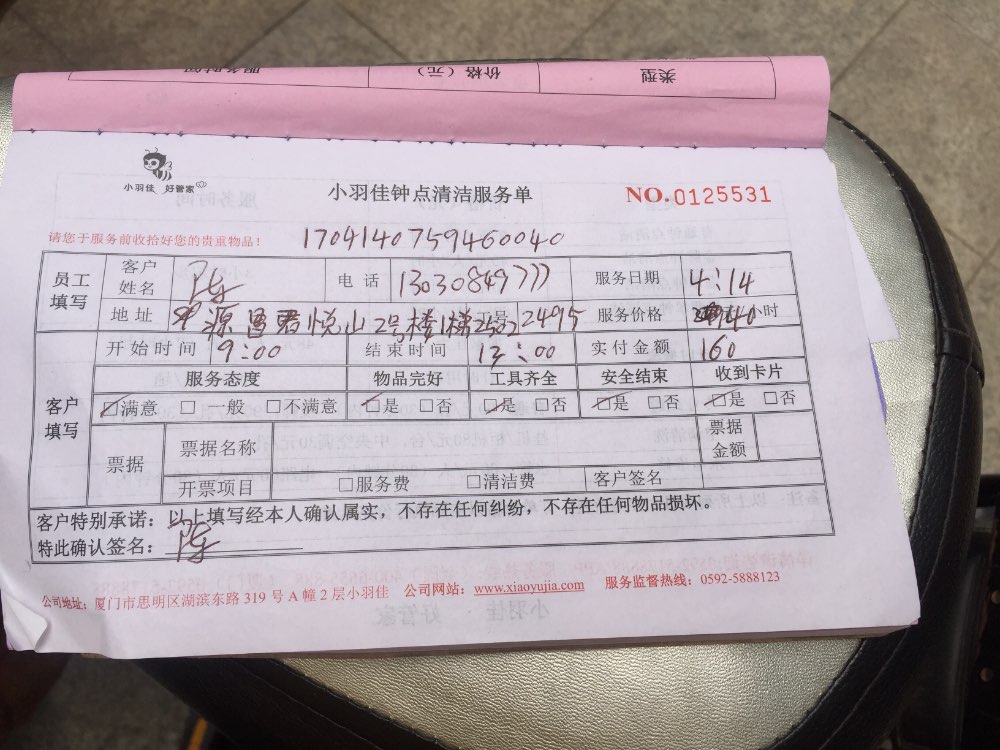 类型 价格（元） 服务时间
小羽佳 好管家
小羽佳钟点清洁服务单
NO.0125531
请您于服务前收拾好您的贵重物品！
1704140759460040
员工填写 客户姓名 陈 电话 13030849777 服务日期 4:14
地址 源昌君悦山2号楼1梯2502 工号 2495 服务价格 40小时
开始时间 9:00 结束时间 13:00 实付金额 160
客户填写 服务态度 物品完好 工具齐全 安全结束 收到卡片
☑满意 □一般 □不满意 ☑是 □否 ☑是 □否 ☑是 □否 ☑是 □否
票据 票据名称 票据金额
开票项目 □服务费 □清洁费 客户签名
客户特别承诺：以上填写经本人确认属实，不存在任何纠纷，不存在任何物品损坏。
特此确认签名：陈
公司地址：厦门市思明区湖滨东路 319 号 A 幢 2 层小羽佳 公司网站：www.xiaoyujia.com 服务监督热线：0592-5888123